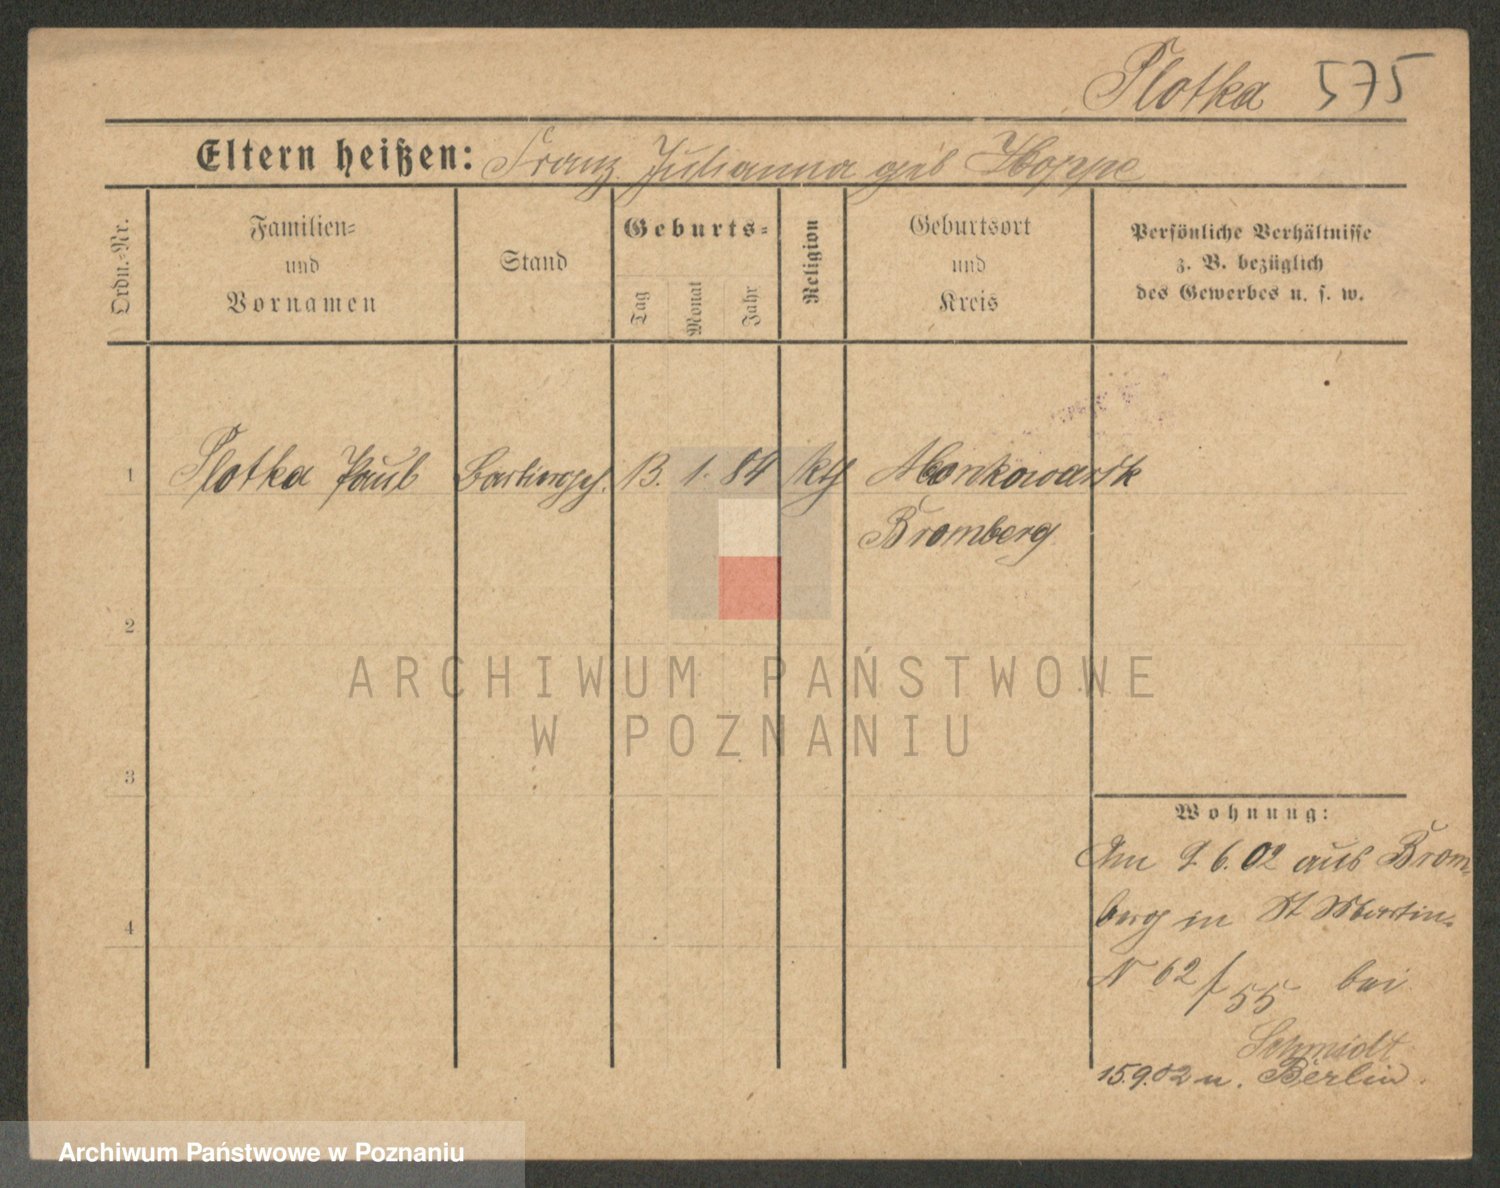 Plotka 575
Eltern heißen: Franz. Julianna geb Hoppe
Ordn.-Nr.
Familien-
und
Vornamen
Stand
Geburts-
Tag
Monat
Jahr
Religion
Geburtsort
und
Kreis
Persönliche Verhältnisse
z. B. bezüglich
des Gewerbes u. s. w.
1 Plotka Paul Barbiergeh. 13. 1. 84 kth Monkowarsk
Bromberg
2
3
4
Wohnung:
Am 9.6.02 aus Brom-
berg in St Martin-
N 62/55 bei
Schmidt
15.9.02 n. Berlin.
ARCHIWUM PAŃSTWOWE
W POZNANIU
Archiwum Państwowe w Poznaniu